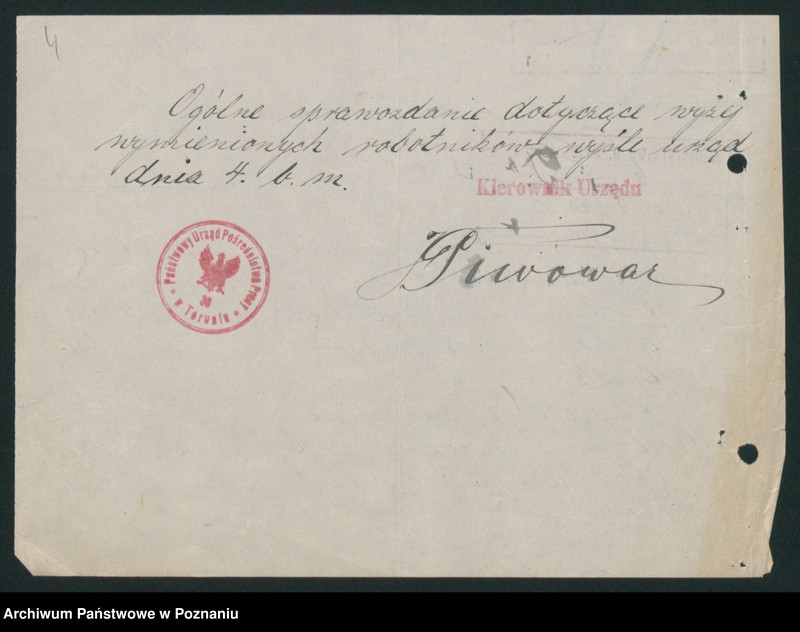 4
Ogólne sprawozdanie dotyczące wyżej
wymienionych robotników wyśle urząd
dnia 4. b. m.
Kierownik Urzędu
Piwowar
Państwowy Urząd Pośrednictwa Pracy
w Toruniu
Archiwum Państwowe w Poznaniu